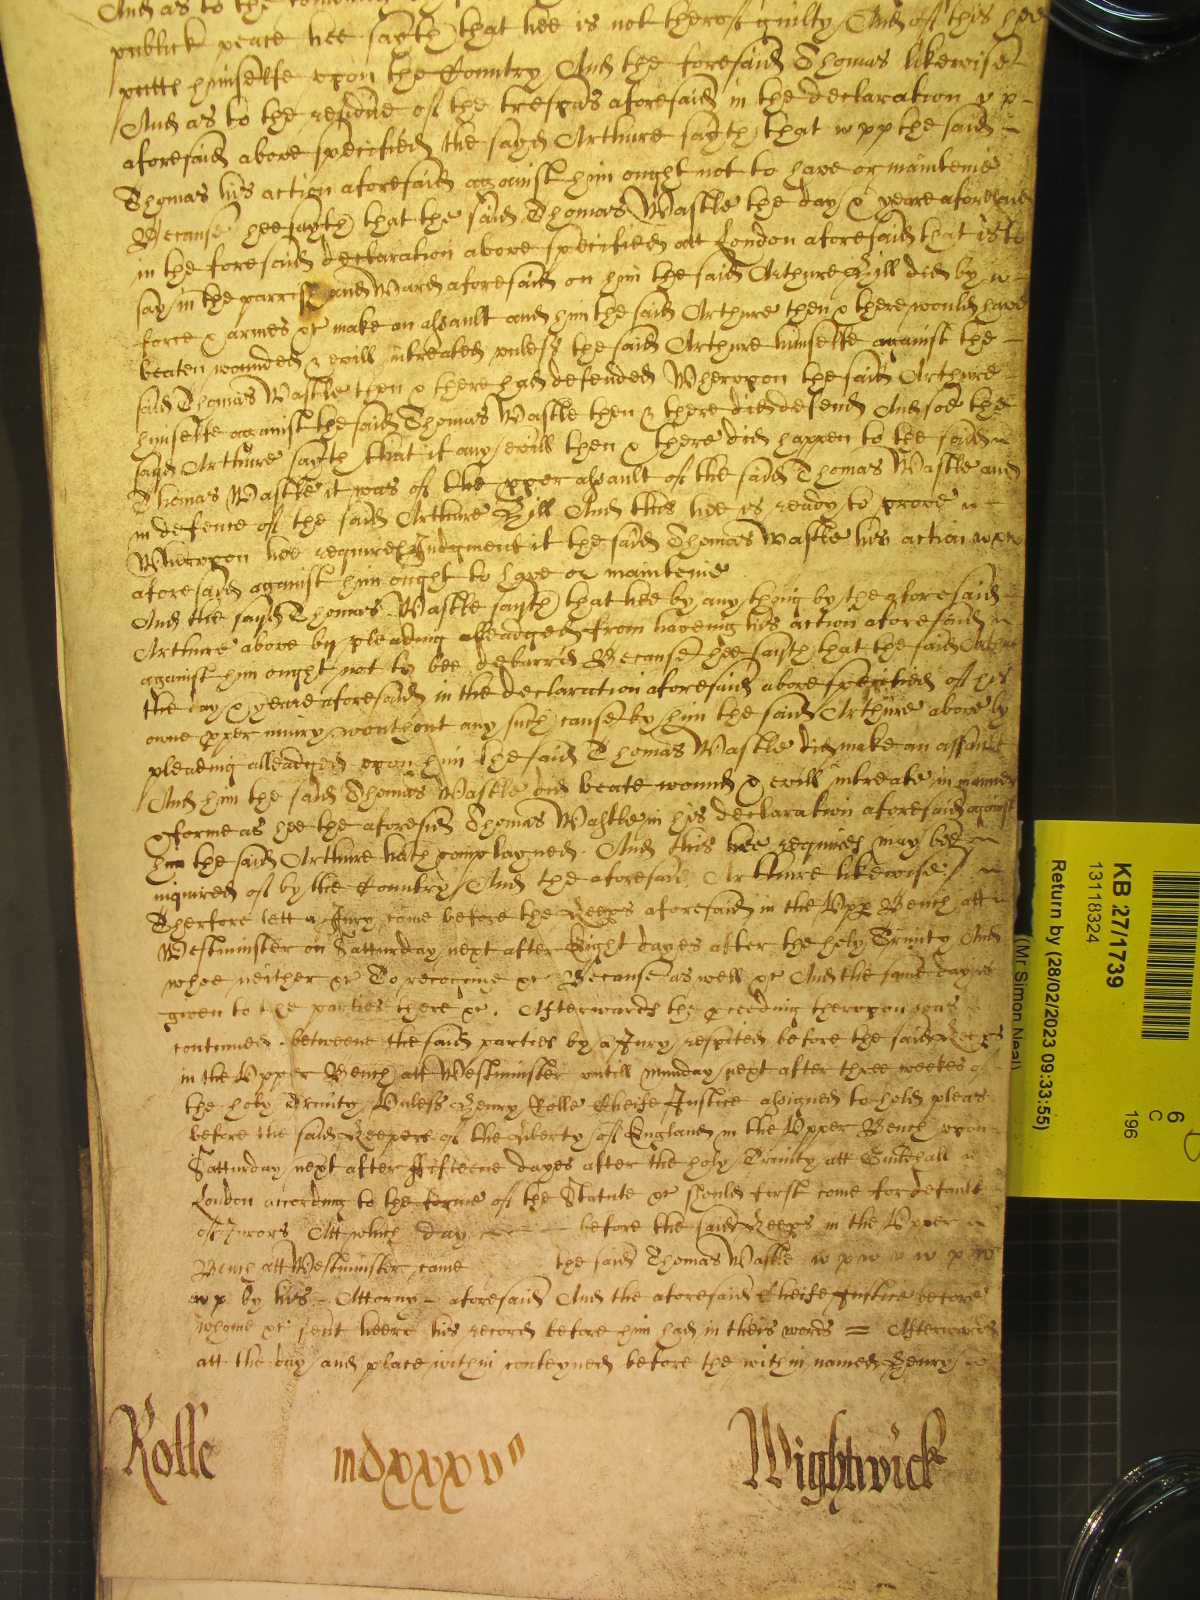 And as to the
publick peace hee sayth that hee is not therof guilty And of this hee
putth himselfe upon the Country And the foresaid Thomas likewise
And as to the residue of the trespas aforesaid in the declaration
aforesaid above specified the sayd Arthure sayth that the said
Thomas his action aforesaid against him ought not to have or mainteine
Because hee sayth that the said Thomas Wastle the day & yeare aforesaid
in the foresaid declaration above specified att London aforesaid that is to
say in the parrish and Ward aforesaid on him the said Arthure Hill did by
force & armes &c make an assault and him the said Arthure then & there would have
beaten wounded & evill intreated unless the said Arthure himselfe against the
said Thomas Wastle then & there had defended Wherupon the said Arthure
himselfe against the said Thomas Wastle then & there did defend And soe the
sayd Arthure sayth that if any evill then & there did happen to the said
Thomas Wastle it was of the pper assault of the said Thomas Wastle and
in defence of the said Arthure Hill And this hee is ready to prove
Wherupon hee requireth Judgment if the said Thomas Wastle his action
aforesaid against him ought to have or mainteine
And the sayd Thomas Wastle sayth that hee by any thing by the aforesaid
Arthure above by pleading alleadged from haveing his action aforesaid
against him ought not to bee debarrd Because hee saith that the said Arthure
the day & yeare aforesaid in the declaration aforesaid above specified of his
owne pper iniury wouthout any such cause by him the said Arthure above by
pleading alleadged upon him the said Thomas Wastle did make an assault
And him the said Thomas Wastle did beate wound & evill intreate in manner
& forme as hee the aforesaid Thomas Wastle in his declaration aforesaid against
him the said Arthure hath complayned And this hee requires may bee
inquired of by the Country And the aforesaid Arthure likewise
Therfore lett a Jury come before the Keeps aforesaid in the Upp Bench att
Westminster on Satturday next after Eight dayes after the holy Trinity And
whoe neither &c To recognise &c Because as well &c And the same day is
given to the parties there &c. Afterwards the pceeding therupon was
continued betweene the said parties by a Jury respited before the said Keeps
in the Upper Bench att Westminster untill munday next after three weekes of
the holy Trinity Unless Henry Rolle Cheife Justice assigned to hold pleas
before the said Keepers of the Liberty of England in the Upper Bench upon
Satturday next after fifteene dayes after the holy Trinity att Guildhall
London according to the forme of the Statute &c should first come for default
of Jurors Att which day before the said Keeps in the Upper
Bench att Westminster came the said Thomas Wastle
by his Attorny aforesaid And the aforesaid Cheife Justice before
whome &c sent heere his record before him had in theis words = Afterwards
att the day and place within conteyned before the within named Henry
Rolle mdxxxv Wightwick
KB 27/1739
13118324
Return by (28/02/2023 09:33:55)
(Mr Simon Neal)
6
C
196